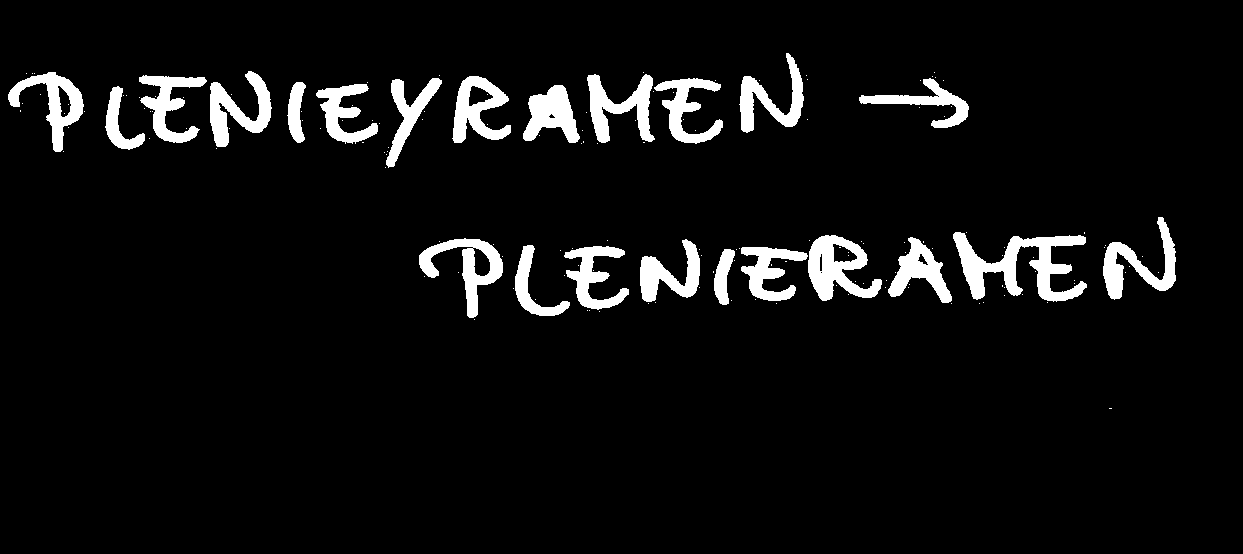 PLENIEYRAMEN →
PLENIERAMEN